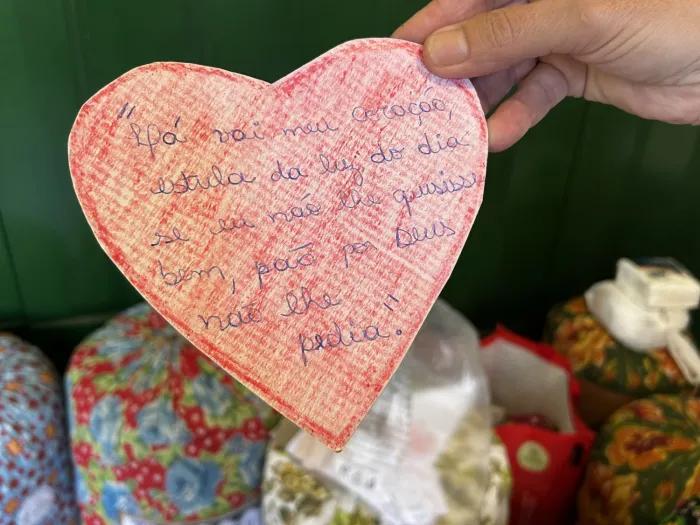 "Lá vai meu coração,
estrela da luz do dia
se eu não lhe quisisse
bem, paão por Deus
não lhe
pedia."